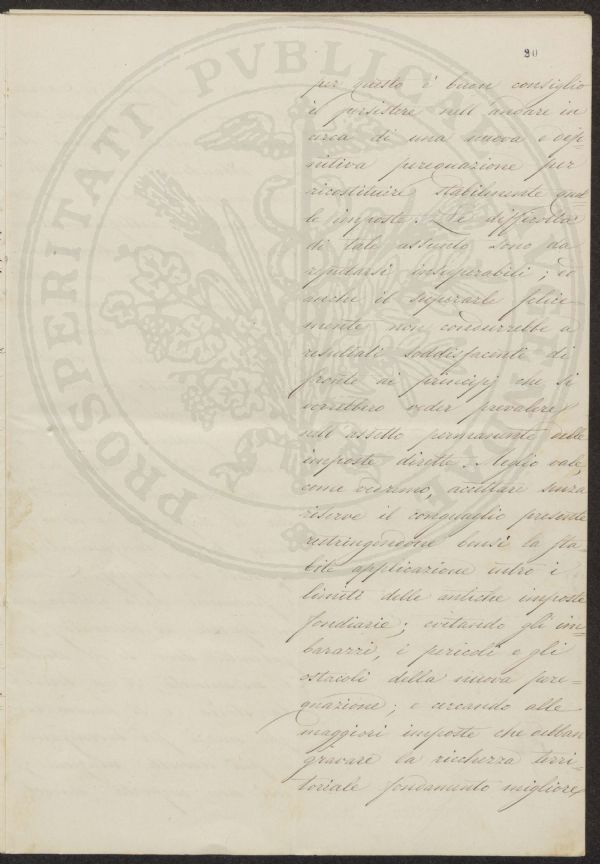 20
per questo è buon consiglio
il persistere nell'andare in
cerca di una nuova e defi
nitiva perequazione per
ricostituire stabilmente quel
le imposte. Le difficoltà
di tale assunto sono da
reputarsi insuperabili; ed
anche il superarle felice-
mente non condurrebbe a
resultati soddisfacenti di
fronte ai principj che si
vorrebbero veder prevalere
nell'assetto permanente delle
imposte dirette. Meglio vale,
come vedremo, accettare senza
riserve il conguaglio presente
restringendone bensì la sta
bile applicazione entro i
limiti delle antiche imposte
fondiarie; evitando gli im-
barazzi, i pericoli e gli
ostacoli della nuova pere-
quazione; e cercando alle
maggiori imposte che debban
gravare la ricchezza terri-
toriale fondamento migliore,
PROSPERITATI PVBLICAE